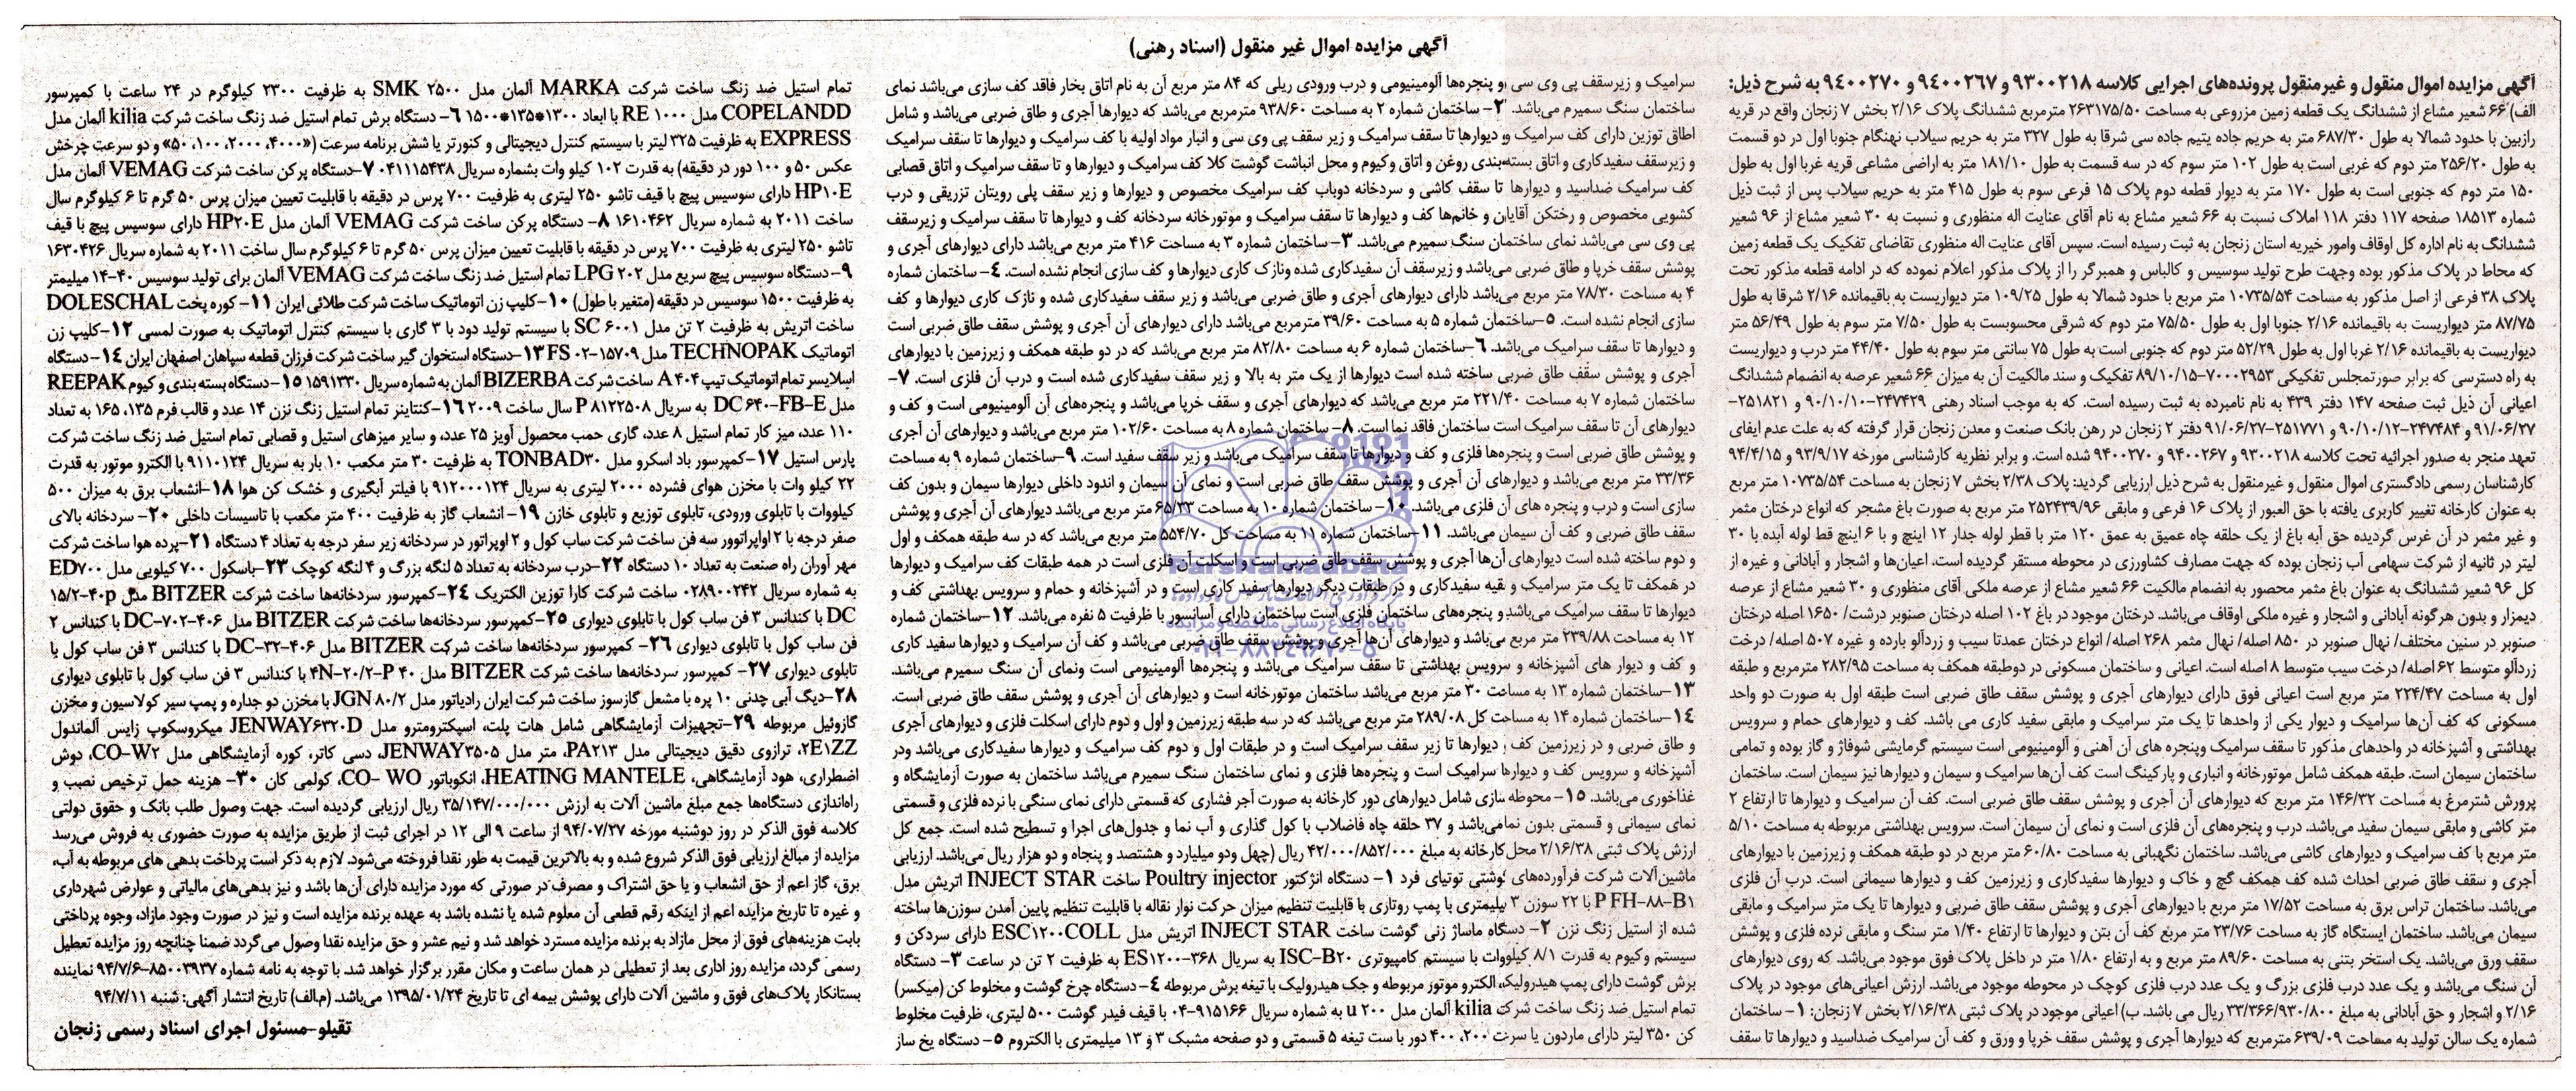 آگهی مزایده اموال غیر منقول (اسناد رهنی)
آگهی مزایده اموال منقول و غیرمنقول پرونده‌های اجرایی کلاسه ۹۳۰۰۲۱۸ و ۹۴۰۰۲۶۷ و ۹۴۰۰۲۷۰ به شرح ذیل:
الف) ۶۶ شعیر مشاع از ششدانگ یک قطعه زمین مزروعی به مساحت ۲۶۳۱۷۵/۵۰ مترمربع ششدانگ پلاک ۲/۱۶ بخش ۷ زنجان واقع در قریه
رازبین با حدود شمالا به طول ۶۸۷/۳۰ متر به حریم جاده یتیم جاده سی شرقا به طول ۳۲۷ متر به حریم سیلاب نهنگام جنوبا اول در دو قسمت
به طول ۲۵۶/۲۰ متر دوم که غربی است به طول ۱۰۲ متر سوم که در سه قسمت به طول ۱۸۱/۱۰ متر به اراضی مشاعی قریه غربا اول به طول
۱۵۰ متر دوم که جنوبی است به طول ۱۷۰ متر به دیوار قطعه دوم پلاک ۱۵ فرعی سوم به طول ۴۱۵ متر به حریم سیلاب پس از ثبت ذیل
شماره ۱۸۵۱۳ صفحه ۱۱۷ دفتر ۱۱۸ املاک نسبت به ۶۶ شعیر مشاع به نام آقای عنایت اله منظوری و نسبت به ۳۰ شعیر مشاع از ۹۶ شعیر
ششدانگ به نام اداره کل اوقاف وامور خیریه استان زنجان به ثبت رسیده است. سپس آقای عنایت اله منظوری تقاضای تفکیک یک قطعه زمین
که محاط در پلاک مذکور بوده وجهت طرح تولید سوسیس و کالباس و همبرگر را از پلاک مذکور اعلام نموده که در ادامه قطعه مذکور تحت
پلاک ۳۸ فرعی از اصل مذکور به مساحت ۱۰۷۳۵/۵۴ متر مربع با حدود شمالا به طول ۱۰۹/۲۵ متر دیواریست به باقیمانده ۲/۱۶ شرقا به طول
۸۷/۷۵ متر دیواریست به باقیمانده ۲/۱۶ جنوبا اول به طول ۷۵/۵۰ متر دوم که شرقی محسوبست به طول ۷/۵۰ متر سوم به طول ۵۶/۴۹ متر
دیواریست به باقیمانده ۲/۱۶ غربا اول به طول ۵۲/۲۹ متر دوم که جنوبی است به طول ۷۵ سانتی متر سوم به طول ۴۴/۴۰ متر درب و دیواریست
به راه دسترسی که برابر صورتمجلس تفکیکی ۷۰۰۰۲۹۵۳-۸۹/۱۰/۱۵ تفکیک و سند مالکیت آن به میزان ۶۶ شعیر عرصه به انضمام ششدانگ
اعیانی آن ذیل ثبت صفحه ۱۴۷ دفتر ۴۳۹ به نام نامبرده به ثبت رسیده است. که به موجب اسناد رهنی ۲۴۷۴۲۹-۹۰/۱۰/۱۰ و ۲۵۱۸۲۱-
۹۱/۰۶/۲۷ و ۲۴۷۴۸۴-۹۰/۱۰/۱۲ و ۲۵۱۷۷۱-۹۱/۰۶/۲۷ دفتر ۲ زنجان در رهن بانک صنعت و معدن زنجان قرار گرفته که به علت عدم ایفای
تعهد منجر به صدور اجرائیه تحت کلاسه ۹۳۰۰۲۱۸ و ۹۴۰۰۲۶۷ و ۹۴۰۰۲۷۰ شده است. و برابر نظریه کارشناسی مورخه ۹۳/۹/۱۷ و ۹۴/۴/۱۵
کارشناسان رسمی دادگستری اموال منقول و غیرمنقول به شرح ذیل ارزیابی گردید: پلاک ۲/۳۸ بخش ۷ زنجان به مساحت ۱۰۷۳۵/۵۴ متر مربع
به عنوان کارخانه تغییر کاربری یافته با حق العبور از پلاک ۱۶ فرعی و مابقی ۲۵۲۴۳۹/۹۶ متر مربع به صورت باغ مشجر که انواع درختان مثمر
و غیر مثمر در آن غرس گردیده حق آبه باغ از یک حلقه چاه عمیق به عمق ۱۲۰ متر با قطر لوله جدار ۱۲ اینچ و با ۶ اینچ قط لوله آبده با ۳۰
لیتر در ثانیه از شرکت سهامی آب زنجان بوده که جهت مصارف کشاورزی در محوطه مستقر گردیده است. اعیان‌ها و اشجار و آبادانی و غیره از
کل ۹۶ شعیر ششدانگ به عنوان باغ مثمر محصور به انضمام مالکیت ۶۶ شعیر مشاع از عرصه ملکی آقای منظوری و ۳۰ شعیر مشاع از عرصه
دیمزار و بدون هرگونه آبادانی و اشجار و غیره ملکی اوقاف می‌باشد. درختان موجود در باغ ۱۰۲ اصله درختان صنوبر درشت/ ۱۶۵۰ اصله درختان
صنوبر در سنین مختلف/ نهال صنوبر در ۸۵۰ اصله/ نهال مثمر ۲۶۸ اصله/ انواع درختان عمدتا سیب و زردآلو بارده و غیره ۵۰۷ اصله/ درخت
زردآلو متوسط ۶۲ اصله/ درخت سیب متوسط ۸ اصله است. اعیانی و ساختمان مسکونی در دوطبقه همکف به مساحت ۲۸۲/۹۵ مترمربع و طبقه
اول به مساحت ۲۲۴/۴۷ متر مربع است اعیانی فوق دارای دیوارهای آجری و پوشش سقف طاق ضربی است طبقه اول به صورت دو واحد
مسکونی که کف آن‌ها سرامیک و دیوار یکی از واحدها تا یک متر سرامیک و مابقی سفید کاری می باشد. کف و دیوارهای حمام و سرویس
بهداشتی و آشپزخانه در واحدهای مذکور تا سقف سرامیک وپنجره های آن آهنی و آلومینیومی است سیستم گرمایشی شوفاژ و گاز بوده و تمامی
ساختمان سیمان است. طبقه همکف شامل موتورخانه و انباری و پارکینگ است کف آن‌ها سرامیک و سیمان و دیوارها نیز سیمان است. ساختمان
پرورش شترمرغ به مساحت ۱۴۶/۳۲ متر مربع که دیوارهای آن آجری و پوشش سقف طاق ضربی است. کف آن سرامیک و دیوارها تا ارتفاع ۲
متر کاشی و مابقی سیمان سفید می‌باشد. درب و پنجره‌های آن فلزی است و نمای آن سیمان است. سرویس بهداشتی مربوطه به مساحت ۵/۱۰
متر مربع با کف سرامیک و دیوارهای کاشی می‌باشد. ساختمان نگهبانی به مساحت ۶۰/۸۰ متر مربع در دو طبقه همکف و زیرزمین با دیوارهای
آجری و سقف طاق ضربی احداث شده کف همکف گچ و خاک و دیوارها سفیدکاری و زیرزمین کف و دیوارها سیمانی است. درب آن فلزی
می‌باشد. ساختمان تراس برق به مساحت ۱۷/۵۲ متر مربع با دیوارهای آجری و پوشش سقف طاق ضربی و دیوارها تا یک متر سرامیک و مابقی
سیمان می‌باشد. ساختمان ایستگاه گاز به مساحت ۲۳/۷۶ متر مربع کف آن بتن و دیوارها تا ارتفاع ۱/۴۰ متر سنگ و مابقی نرده فلزی و پوشش
سقف ورق می‌باشد. یک استخر بتنی به مساحت ۸۹/۶۰ متر مربع و به ارتفاع ۱/۸۰ متر در داخل پلاک فوق موجود می‌باشد. که روی دیوارهای
آن سنگ می‌باشد و یک عدد درب فلزی بزرگ و یک عدد درب فلزی کوچک در محوطه موجود می‌باشد. ارزش اعیانی‌های موجود در پلاک
۲/۱۶ و اشجار و حق آبادانی به مبلغ ۳۳/۳۶۶/۹۳۰/۸۰۰ ریال می باشد. ب) اعیانی موجود در پلاک ثبتی ۲/۱۶/۳۸ بخش ۷ زنجان: ۱- ساختمان
شماره یک سالن تولید به مساحت ۶۳۹/۰۹ مترمربع که دیوارها آجری و پوشش سقف خرپا و ورق و کف آن سرامیک ضداسید و دیوارها تا سقف
سرامیک و زیرسقف پی وی سی و پنجره‌ها آلومینیومی و درب ورودی ریلی که ۸۴ متر مربع آن به نام اتاق بخار فاقد کف سازی می‌باشد نمای
ساختمان سنگ سمیرم می‌باشد. ۲- ساختمان شماره ۲ به مساحت ۹۳۸/۶۰ مترمربع می‌باشد که دیوارها آجری و طاق ضربی می‌باشد و شامل
اطاق توزین دارای کف سرامیک و دیوارها تا سقف سرامیک و زیر سقف پی وی سی و انبار مواد اولیه با کف سرامیک و دیوارها تا سقف سرامیک
و زیرسقف سفیدکاری و اتاق بسته‌بندی روغن و اتاق وکیوم و محل انباشت گوشت کلا کف سرامیک و دیوارها و تا سقف سرامیک و اتاق قصابی
کف سرامیک ضداسید و دیوارها تا سقف کاشی و سردخانه دوباب کف سرامیک مخصوص و دیوارها و زیر سقف پلی رویتان تزریقی و درب
کشویی مخصوص و رختکن آقایان و خانم‌ها کف و دیوارها تا سقف سرامیک و موتورخانه سردخانه کف و دیوارها تا سقف سرامیک و زیرسقف
پی وی سی می‌باشد نمای ساختمان سنگ سمیرم می‌باشد. ۳- ساختمان شماره ۳ به مساحت ۴۱۶ متر مربع می‌باشد دارای دیوارهای آجری و
پوشش سقف خرپا و طاق ضربی می‌باشد و زیرسقف آن سفیدکاری شده ونازک کاری دیوارها و کف سازی انجام نشده است. ۴- ساختمان شماره
۴ به مساحت ۷۸/۳۰ متر مربع می‌باشد دارای دیوارهای آجری و طاق ضربی می‌باشد و زیر سقف سفیدکاری شده و نازک کاری دیوارها و کف
سازی انجام نشده است. ۵-ساختمان شماره ۵ به مساحت ۳۹/۶۰ مترمربع می‌باشد دارای دیوارهای آن آجری و پوشش سقف طاق ضربی است
و دیوارها تا سقف سرامیک می‌باشد. ۶-ساختمان شماره ۶ به مساحت ۸۲/۸۰ متر مربع می‌باشد که در دو طبقه همکف و زیرزمین با دیوارهای
آجری و پوشش سقف طاق ضربی ساخته شده است دیوارها از یک متر به بالا و زیر سقف سفیدکاری شده است و درب آن فلزی است. ۷-
ساختمان شماره ۷ به مساحت ۲۲۱/۴۰ متر مربع می‌باشد که دیوارهای آجری و سقف خرپا می‌باشد و پنجره‌های آن آلومینیومی است و کف و
دیوارهای آن تا سقف سرامیک است ساختمان فاقد نما است. ۸- ساختمان شماره ۸ به مساحت ۱۰۲/۶۰ متر مربع می‌باشد و دیوارهای آن آجری
و پوشش طاق ضربی است و پنجره‌ها فلزی و کف و دیوارها تا سقف سرامیک می‌باشد و زیر سقف سفید است. ۹-ساختمان شماره ۹ به مساحت
۳۳/۳۶ متر مربع می‌باشد و دیوارهای آن آجری و پوشش سقف طاق ضربی است و نمای آن سیمان و اندود داخلی دیوارها سیمان و بدون کف
سازی است و درب و پنجره های آن فلزی می‌باشد. ۱۰- ساختمان شماره ۱۰ به مساحت ۶۵/۳۳ متر مربع می‌باشد دیوارهای آن آجری و پوشش
سقف طاق ضربی و کف آن سیمان می‌باشد. ۱۱-ساختمان شماره ۱۱ به مساحت کل ۵۵۴/۷۰ متر مربع می‌باشد که در سه طبقه همکف و اول
و دوم ساخته شده است دیوارهای آن‌ها آجری و پوشش سقف طاق ضربی است و اسکلت آن فلزی است در همه طبقات کف سرامیک و دیوارها
در همکف تا یک متر سرامیک و بقیه سفیدکاری و در طبقات دیگر دیوارها سفید کاری است و در آشپزخانه و حمام و سرویس بهداشتی کف و
دیوارها تا سقف سرامیک می‌باشد و پنجره‌های ساختمان فلزی است ساختمان دارای آسانسور با ظرفیت ۵ نفره می‌باشد. ۱۲-ساختمان شماره
۱۲ به مساحت ۲۳۹/۸۸ متر مربع می‌باشد و دیوارهای آن‌ها آجری و پوشش سقف طاق ضربی می‌باشد و کف آن سرامیک و دیوارها سفید کاری
و کف و دیوار های آشپزخانه و سرویس بهداشتی تا سقف سرامیک می‌باشد و پنجره‌ها آلومینیومی است ونمای آن سنگ سمیرم می‌باشد.
۱۳-ساختمان شماره ۱۳ به مساحت ۳۰ متر مربع می‌باشد ساختمان موتورخانه است و دیوارهای آن آجری و پوشش سقف طاق ضربی است.
۱۴-ساختمان شماره ۱۴ به مساحت کل ۲۸۹/۰۸ متر مربع می‌باشد که در سه طبقه زیرزمین و اول و دوم دارای اسکلت فلزی و دیوارهای آجری
و طاق ضربی و در زیرزمین کف و دیوارها تا زیر سقف سرامیک است و در طبقات اول و دوم کف سرامیک و دیوارها سفیدکاری می‌باشد ودر
آشپزخانه و سرویس کف و دیوارها سرامیک است و پنجره‌ها فلزی و نمای ساختمان سنگ سمیرم می‌باشد ساختمان به صورت آزمایشگاه و
غذاخوری می‌باشد. ۱۵- محوطه سازی شامل دیوارهای دور کارخانه به صورت آجر فشاری که قسمتی دارای نمای سنگی با نرده فلزی و قسمتی
نمای سیمانی و قسمتی بدون نمامی‌باشد و ۳۷ حلقه چاه فاضلاب با کول گذاری و آب نما و جدول‌های اجرا و تسطیح شده است. جمع کل
ارزش پلاک ثبتی ۲/۱۶/۳۸ محل کارخانه به مبلغ ۴۲/۰۰۰/۸۵۲/۰۰۰ ریال (چهل ودو میلیارد و هشتصد و پنجاه و دو هزار ریال می‌باشد. ارزیابی
ماشین‌آلات شرکت فرآورده‌های گوشتی توتیای فرد ۱- دستگاه انژکتور Poultry injector ساخت INJECT STAR اتریش مدل
P FH-۸۸-B۱ با ۲۲ سوزن ۳ میلیمتری با پمپ روتاری با قابلیت تنظیم میزان حرکت نوار نقاله با قابلیت تنظیم پایین آمدن سوزن‌ها ساخته
شده از استیل زنگ نزن ۲- دستگاه ماساژ زنی گوشت ساخت INJECT STAR اتریش مدل ESC۱۲۰۰COLL دارای سردکن و
سیستم وکیوم به قدرت ۸/۱ کیلووات با سیستم کامپیوتری ISC-B۲۰ به سریال ۳۶۸-ES۱۲۰۰ به ظرفیت ۲ تن در ساعت ۳- دستگاه
برش گوشت دارای پمپ هیدرولیک، الکترو موتور مربوطه و جک هیدرولیک با تیغه برش مربوطه ۴- دستگاه چرخ گوشت و مخلوط کن (میکسر)
تمام استیل ضد زنگ ساخت شرکت kilia آلمان مدل u ۲۰۰ به شماره سریال ۹۱۵۱۶۶-۰۴ با قیف فیدر گوشت ۵۰۰ لیتری، ظرفیت مخلوط
کن ۳۵۰ لیتر دارای ماردون با سرعت ۲۰۰، ۴۰۰ دور با ست تیغه ۵ قسمتی و دو صفحه مشبک ۳ و ۱۳ میلیمتری با الکتروم ۵- دستگاه یخ ساز
تمام استیل ضد زنگ ساخت شرکت MARKA آلمان مدل SMK ۲۵۰۰ به ظرفیت ۲۳۰۰ کیلوگرم در ۲۴ ساعت با کمپرسور
COPELANDD مدل RE ۱۰۰۰ با ابعاد ۱۳۰۰*۱۳۵*۱۵۰۰ ۶- دستگاه برش تمام استیل ضد زنگ ساخت شرکت kilia آلمان مدل
EXPRESS به ظرفیت ۳۲۵ لیتر با سیستم کنترل دیجیتالی و کنورتر با شش برنامه سرعت («۴۰۰۰، ۲۰۰۰، ۱۰۰، ۵۰» و دو سرعت چرخش
عکس ۵۰ و ۱۰۰ دور در دقیقه) به قدرت ۱۰۲ کیلو وات بشماره سریال ۰۴۱۱۱۵۴۳۸ ۷-دستگاه پرکن ساخت شرکت VEMAG آلمان مدل
HP۱۰E دارای سوسیس پیچ با قیف تاشو ۲۵۰ لیتری به ظرفیت ۷۰۰ پرس در دقیقه با قابلیت تعیین میزان پرس ۵۰ گرم تا ۶ کیلوگرم سال
ساخت ۲۰۱۱ به شماره سریال ۱۶۱۰۴۶۲ ۸- دستگاه پرکن ساخت شرکت VEMAG آلمان مدل HP۲۰E دارای سوسیس پیچ با قیف
تاشو ۲۵۰ لیتری به ظرفیت ۷۰۰ پرس در دقیقه با قابلیت تعیین میزان پرس ۵۰ گرم تا ۶ کیلوگرم سال ساخت ۲۰۱۱ به شماره سریال ۱۶۳۰۴۲۶
۹- دستگاه سوسیس پیچ سریع مدل LPG ۲۰۲ تمام استیل ضد زنگ ساخت شرکت VEMAG آلمان برای تولید سوسیس ۴۰-۱۴ میلیمتر
به ظرفیت ۱۵۰۰ سوسیس در دقیقه (متغیر با طول) ۱۰-کلیپ زن اتوماتیک ساخت شرکت طلائی ایران ۱۱- کوره پخت DOLESCHAL
ساخت اتریش به ظرفیت ۲ تن مدل SC ۶۰۰۱ با سیستم تولید دود با ۳ گاری با سیستم کنترل اتوماتیک به صورت لمسی ۱۲-کلیپ زن
اتوماتیک TECHNOPAK مدل FS ۰۲-۱۵۷۰۹ ۱۳-دستگاه استخوان گیر ساخت شرکت فرزان قطعه سپاهان اصفهان ایران ۱۴-دستگاه
اسلایسر تمام اتوماتیک تیپ A ۴۰۴ ساخت شرکت BIZERBA آلمان به شماره سریال ۱۵۹۱۳۳۰ ۱۵-دستگاه بسته بندی و کیوم REEPAK
مدل DC ۶۴۰-FB-E به سریال P ۸۱۲۲۵۰۸ سال ساخت ۲۰۰۹ ۱۶-کنتاینر تمام استیل زنگ نزن ۱۴ عدد و قالب فرم ۱۳۵، ۱۶۵ به تعداد
۱۱۰ عدد، میز کار تمام استیل ۸ عدد، گاری حمب محصول آویز ۲۵ عدد، و سایر میزهای استیل و قصابی تمام استیل ضد زنگ ساخت شرکت
پارس استیل ۱۷-کمپرسور باد اسکرو مدل TONBAD۳۰ به ظرفیت ۳۰ متر مکعب ۱۰ بار به سریال ۹۱۱۰۱۲۴ با الکترو موتور به قدرت
۲۲ کیلو وات با مخزن هوای فشرده ۲۰۰۰ لیتری به سریال ۹۱۲۰۰۰۱۲۴ با فیلتر آبگیری و خشک کن هوا ۱۸-انشعاب برق به میزان ۵۰۰
کیلووات با تابلوی ورودی، تابلوی توزیع و تابلوی خازن ۱۹- انشعاب گاز به ظرفیت ۴۰۰ متر مکعب با تاسیسات داخلی ۲۰- سردخانه بالای
صفر درجه با ۲ اواپراتوور سه فن ساخت شرکت ساب کول و ۲ اوپراتور در سردخانه زیر سفر درجه به تعداد ۴ دستگاه ۲۱-پرده هوا ساخت شرکت
مهر آوران راه صنعت به تعداد ۱۰ دستگاه ۲۲-درب سردخانه به تعداد ۵ لنگه بزرگ و ۴ لنگه کوچک ۲۳-باسکول ۷۰۰ کیلویی مدل ED۷۰۰
به شماره سریال ۰۲۸۹۰۰۲۴۲ ساخت شرکت کارا توزین الکتریک ۲۴-کمپرسور سردخانه‌ها ساخت شرکت BITZER مدل ۱۵/۲-۴۰p
DC با کندانس ۳ فن ساب کول با تابلوی دیواری ۲۵-کمپرسور سردخانه‌ها ساخت شرکت BITZER مدل DC-۷۰۲-۴۰۶ با کندانس ۲
فن ساب کول با تابلوی دیواری ۲۶- کمپرسور سردخانه‌ها ساخت شرکت BITZER مدل DC-۳۲-۴۰۶ با کندانس ۳ فن ساب کول با
تابلوی دیواری ۲۷- کمپرسور سردخانه‌ها ساخت شرکت BITZER مدل ۴N-۲۰/۲-P ۴۰ با کندانس ۳ فن ساب کول با تابلوی دیواری
۲۸-دیگ آبی چدنی ۱۰ پره با مشعل گازسوز ساخت شرکت ایران رادیاتور مدل JGN ۸۰/۲ با مخزن دو جداره و پمپ سیر کولاسیون و مخزن
گازوئیل مربوطه ۲۹-تجهیزات آزمایشگاهی شامل هات پلت، اسپکترومترو مدل JENWAY۶۳۲۰D میکروسکوپ زایس آلماندول
۲E۱ZZ، ترازوی دقیق دیجیتالی مدل PA۲۱۳، متر مدل JENWAY۳۵۰۵، دسی کاتر، کوره آزمایشگاهی مدل CO-W۲، دوش
اضطراری، هود آزمایشگاهی، HEATING MANTELE، انکوباتور CO- WO، کولمی کان ۳۰- هزینه حمل ترخیص نصب و
راه‌اندازی دستگاه‌ها جمع مبلغ ماشین آلات به ارزش ۳۵/۱۴۷/۰۰۰/۰۰۰ ریال ارزیابی گردیده است. جهت وصول طلب بانک و حقوق دولتی
کلاسه فوق الذکر در روز دوشنبه مورخه ۹۴/۰۷/۲۷ از ساعت ۹ الی ۱۲ در اجرای ثبت از طریق مزایده به صورت حضوری به فروش می‌رسد
مزایده از مبالغ ارزیابی فوق الذکر شروع شده و به بالاترین قیمت به طور نقدا فروخته می‌شود. لازم به ذکر است پرداخت بدهی های مربوطه به آب،
برق، گاز اعم از حق انشعاب و یا حق اشتراک و مصرف در صورتی که مورد مزایده دارای آن‌ها باشد و نیز بدهی‌های مالیاتی و عوارض شهرداری
و غیره تا تاریخ مزایده اعم از اینکه رقم قطعی آن معلوم شده یا نشده باشد به عهده برنده مزایده است و نیز در صورت وجود مازاد، وجوه پرداختی
بابت هزینه‌های فوق از محل مازاد به برنده مزایده مسترد خواهد شد و نیم عشر و حق مزایده نقدا وصول می‌گردد ضمنا چنانچه روز مزایده تعطیل
رسمی گردد، مزایده روز اداری بعد از تعطیلی در همان ساعت و مکان مقرر برگزار خواهد شد. با توجه به نامه شماره ۸۵۰۰۳۹۳۷-۹۴/۷/۶ نماینده
بستانکار پلاک‌های فوق و ماشین آلات دارای پوشش بیمه ای تا تاریخ ۱۳۹۵/۰۱/۲۴ می‌باشد. (م.الف) تاریخ انتشار آگهی: شنبه ۹۴/۷/۱۱
تقیلو-مسئول اجرای اسناد رسمی زنجان